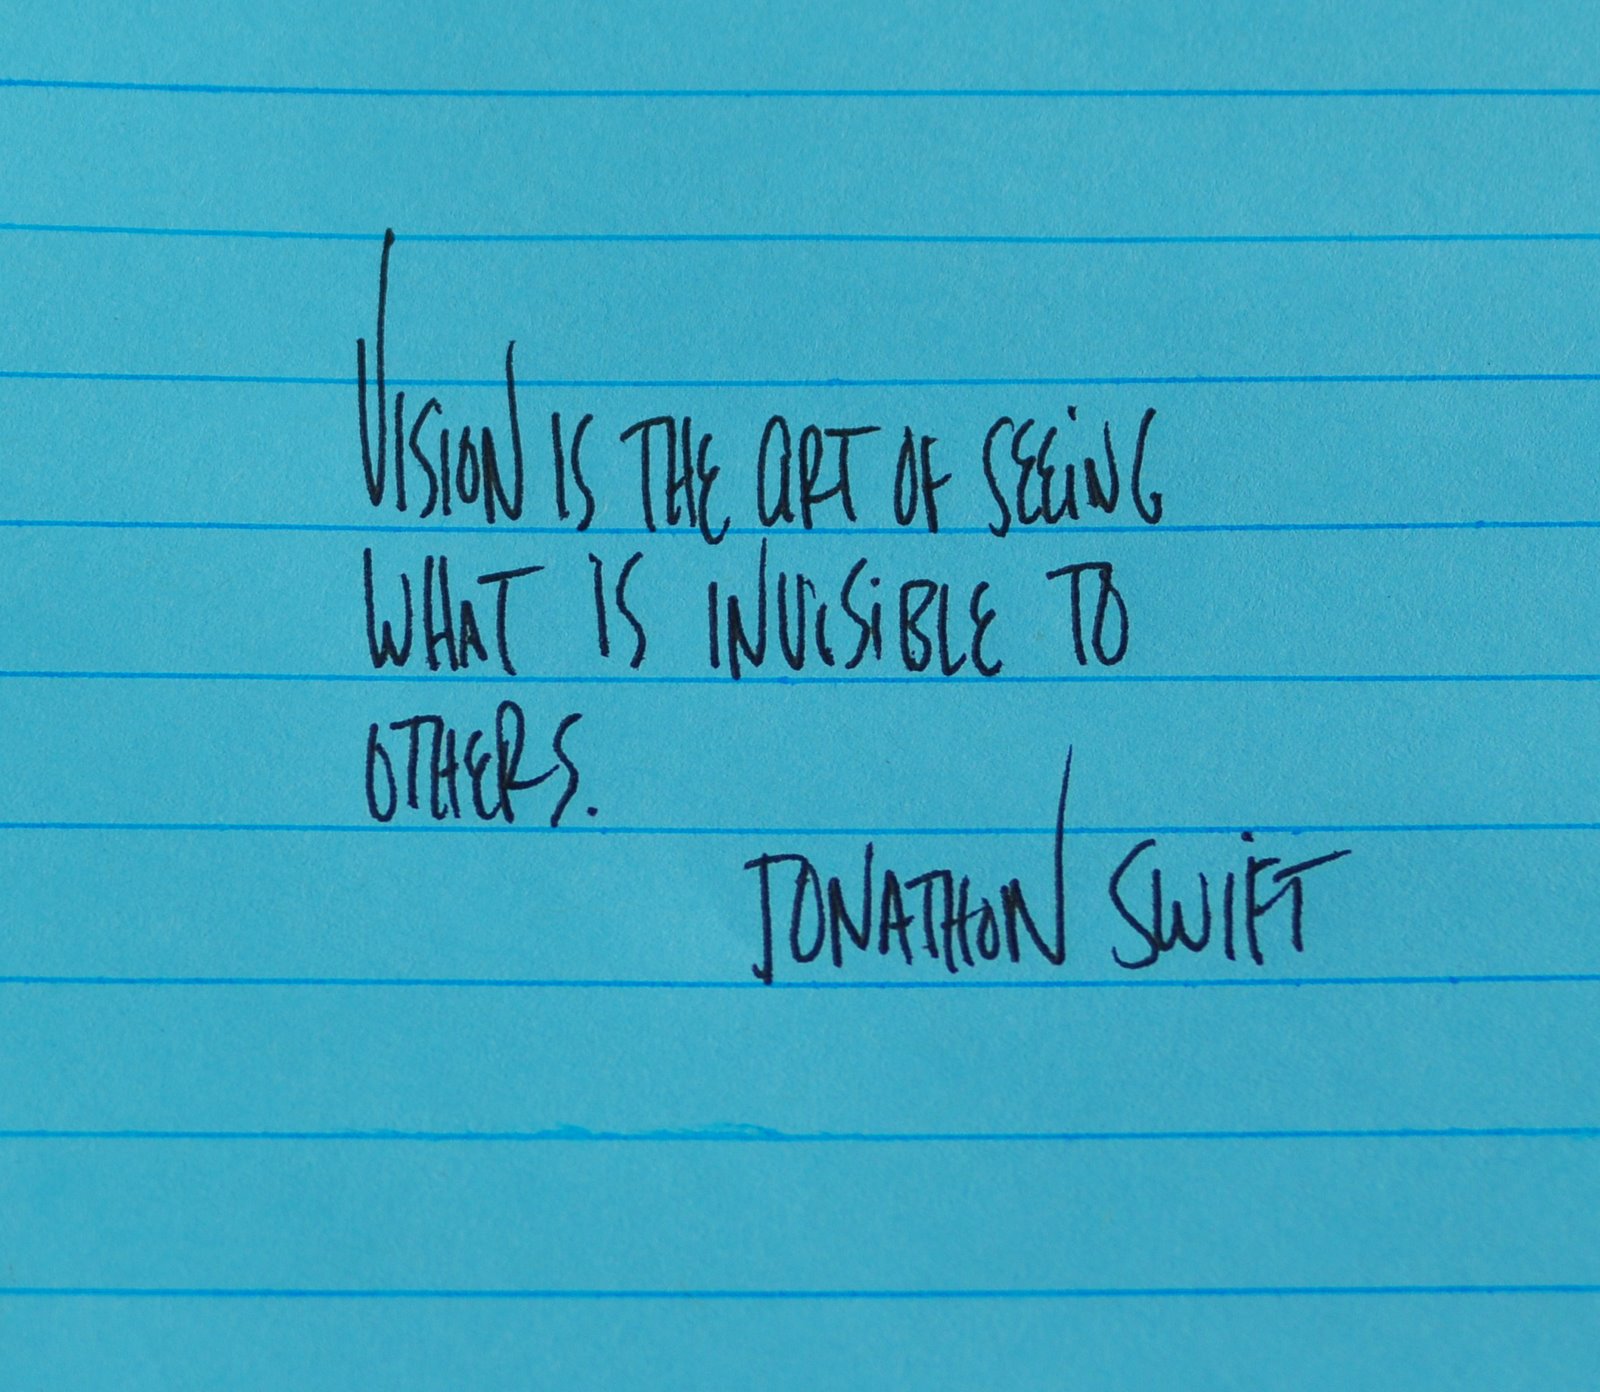 VISION IS THE ART OF SEEING
WHAT IS INVISIBLE TO
OTHERS.
JONATHON SWIFT